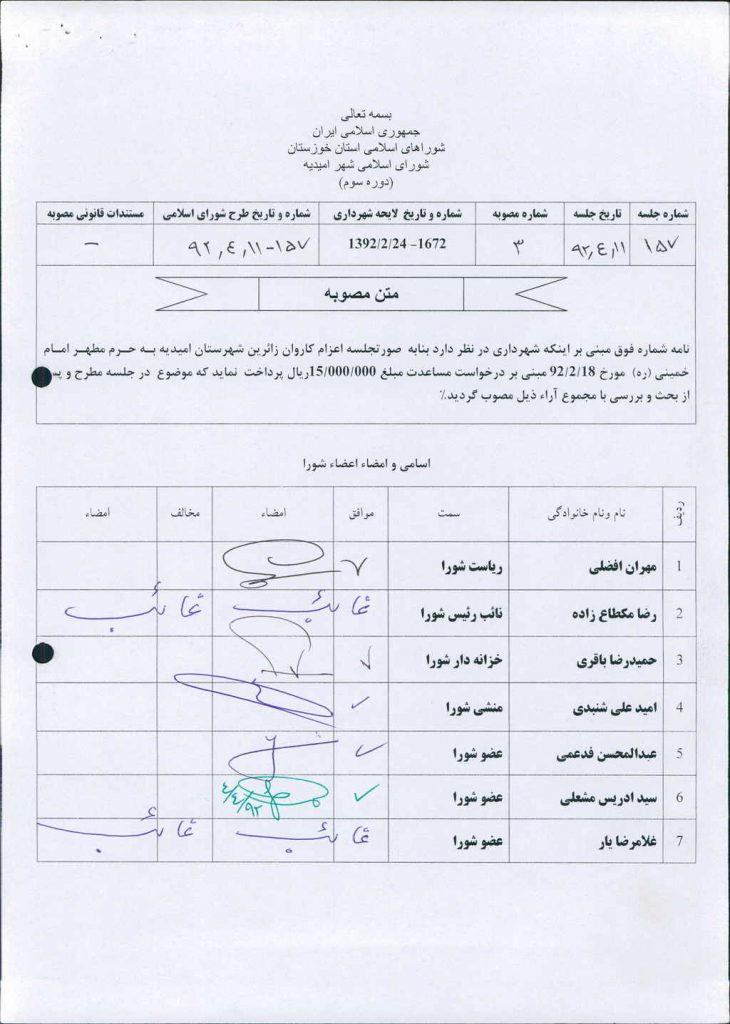 بسمه تعالی
جمهوری اسلامی ایران
شوراهای اسلامی استان خوزستان
شورای اسلامی شهر امیدیه
(دوره سوم)
شماره جلسه تاریخ جلسه شماره مصوبه شماره و تاریخ لایحه شهرداری شماره و تاریخ طرح شورای اسلامی مستندات قانونی مصوبه
۱۵۷ ۹۲,٤,۱۱ ۳ 1672- 1392/2/24 ۱۵۷-۹۲,٤,۱۱ –
متن مصوبه
نامه شماره فوق مبنی بر اینکه شهرداری در نظر دارد بنابه صورتجلسه اعزام کاروان زائرین شهرستان امیدیه به حرم مطهر امام
خمینی (ره) مورخ 92/2/18 مبنی بر درخواست مساعدت مبلغ 15/000/000ریال پرداخت نماید که موضوع در جلسه مطرح و پس
از بحث و بررسی با مجموع آراء ذیل مصوب گردید.٪
اسامی و امضاء اعضاء شورا
ردیف نام ونام خانوادگی سمت موافق امضاء مخالف امضاء
1 مهران افضلی ریاست شورا
2 رضا مکطاع زاده نائب رئیس شورا غائب غائب غائب غائب
3 حمیدرضا باقری خزانه دار شورا
4 امید علی شنبدی منشی شورا
5 عبدالمحسن فدعمی عضو شورا
6 سید ادریس مشعلی عضو شورا ٤/٤/۹۲
7 غلامرضا یار عضو شورا غائب غائب غائب غائب